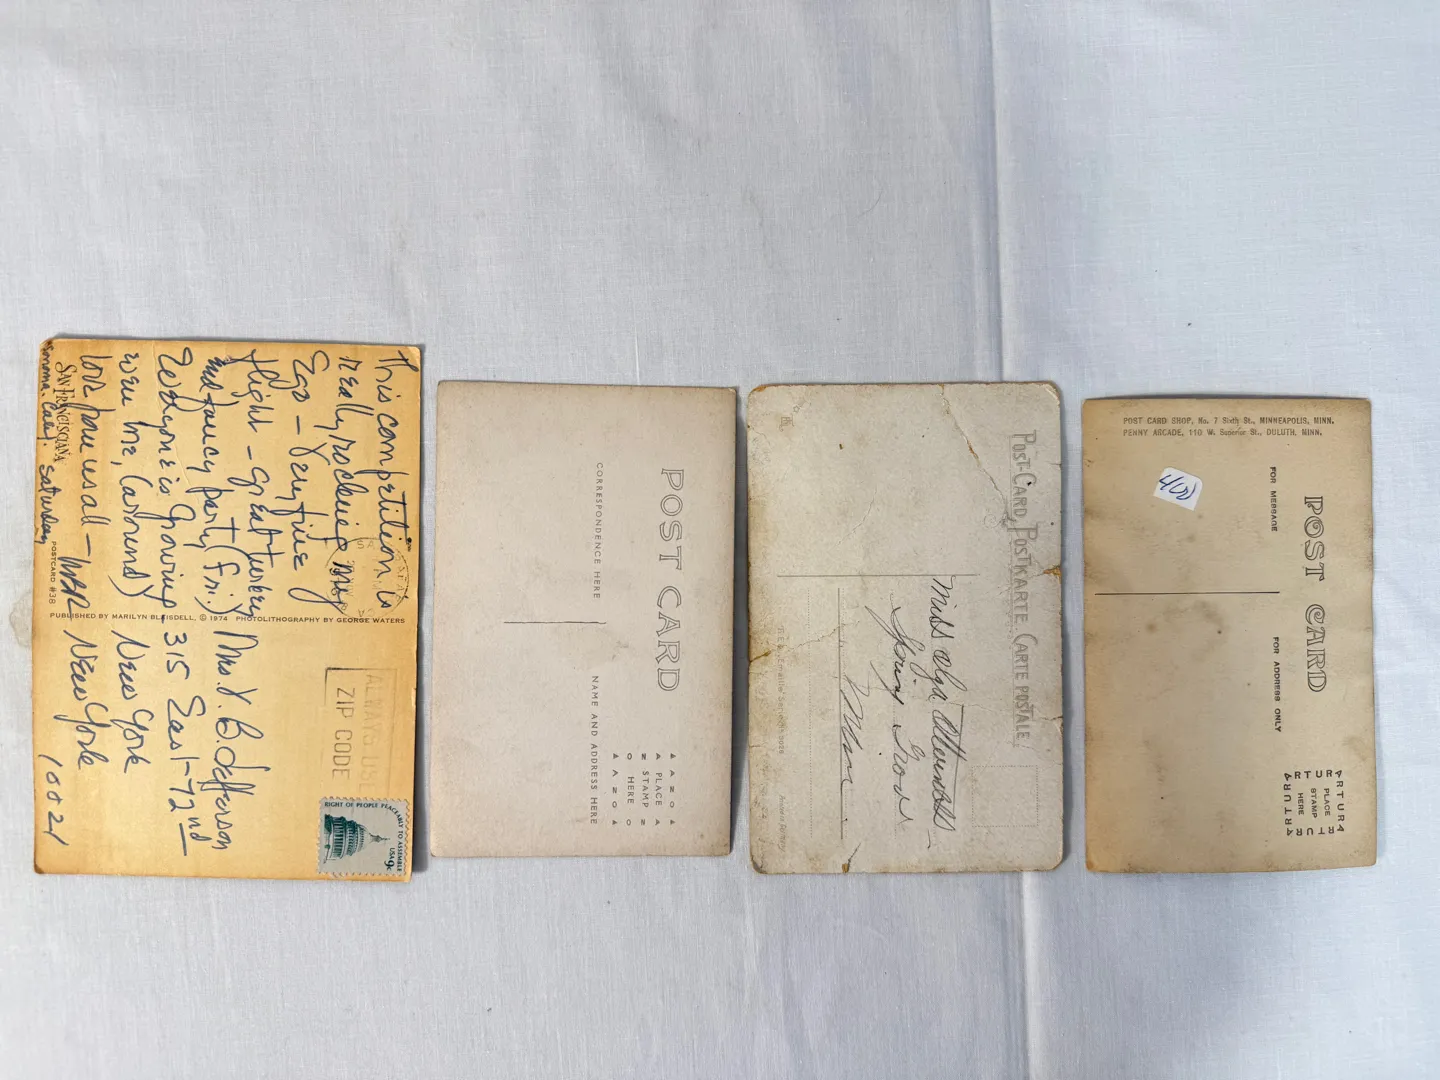 This competition is
really rocking my
Ego – Very fine
flight – great turkey
and fancy party (fri.)
Everyone is growing
were me, (around)
love you us all –
Sonoma. Calif. Saturday
SAN FRANCISCIANA
POSTCARD #38
PUBLISHED BY MARILYN BLAISDELL, © 1974 PHOTOLITHOGRAPHY BY GEORGE WATERS
ALWAYS USE
ZIP CODE
RIGHT OF PEOPLE PEACEABLY TO ASSEMBLE
USA 9c
B Jefferson
315 East – 72nd
New York
New York
10021
POST CARD
CORRESPONDENCE HERE
NAME AND ADDRESS HERE
AANOA
PLACE
STAMP
HERE
AANOA
POST-CARD, POSTKARTE, CARTE POSTALE
Miss Olga
Spring Grove
Minn
POST CARD SHOP, No. 7 Sixth St., MINNEAPOLIS, MINN.
PENNY ARCADE, 110 W. Superior St., DULUTH, MINN.
400
POST CARD
FOR MESSAGE
FOR ADDRESS ONLY
ARTURA
PLACE
STAMP
HERE
ARTURA